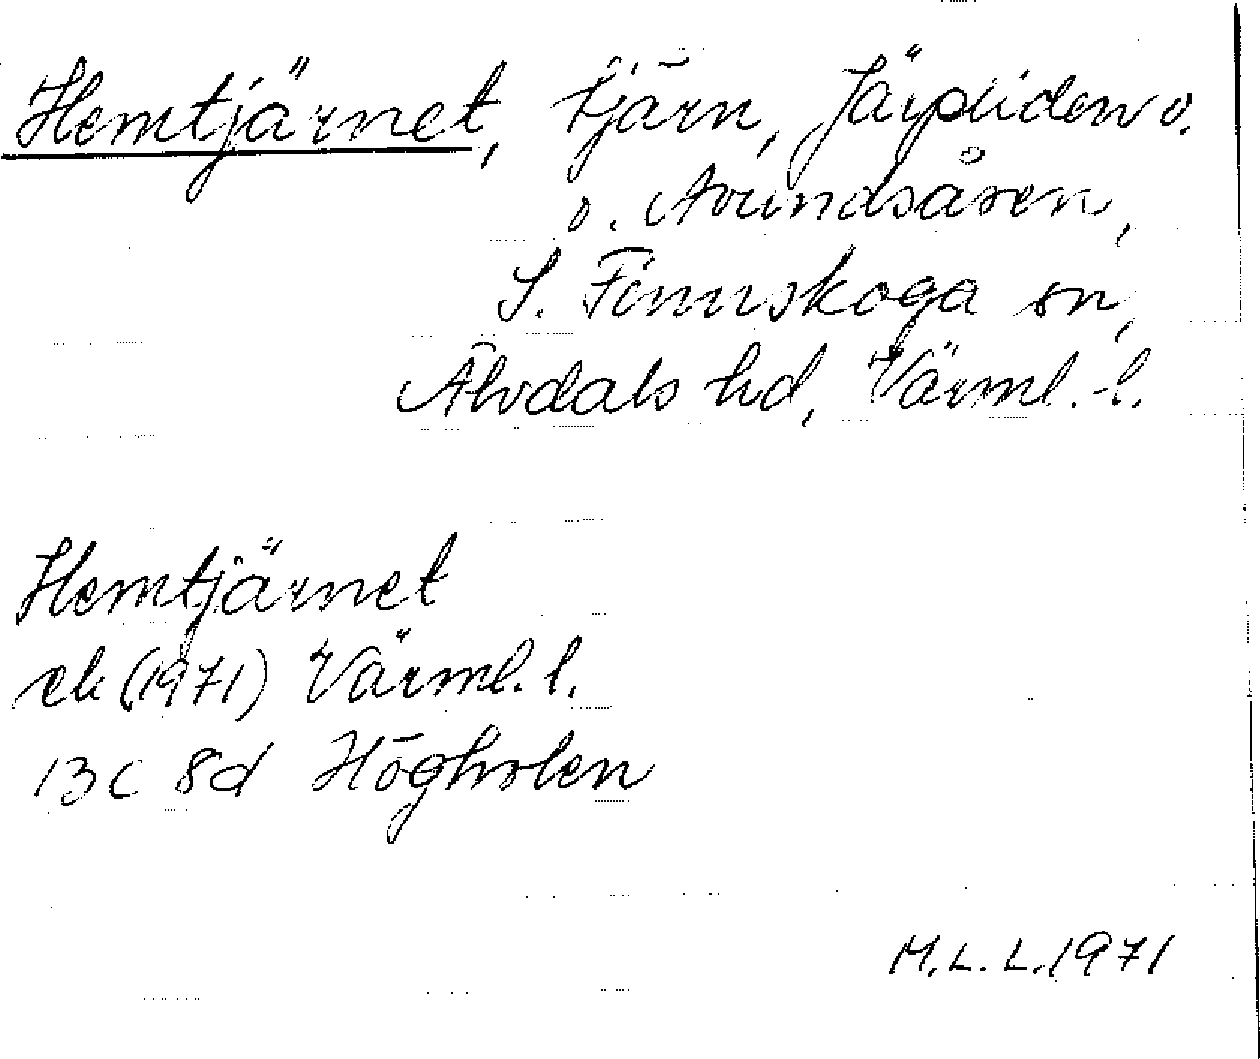 Hemtjärnet, tjärn, Järpliden o.
o. Avundsåsen,
S. Finnskoga sn,
Älvdals hd, Värml. l.
Hemtjärnet
ek (1971) Värml. l.
13C 8d Högholen
M.L.L. 1971